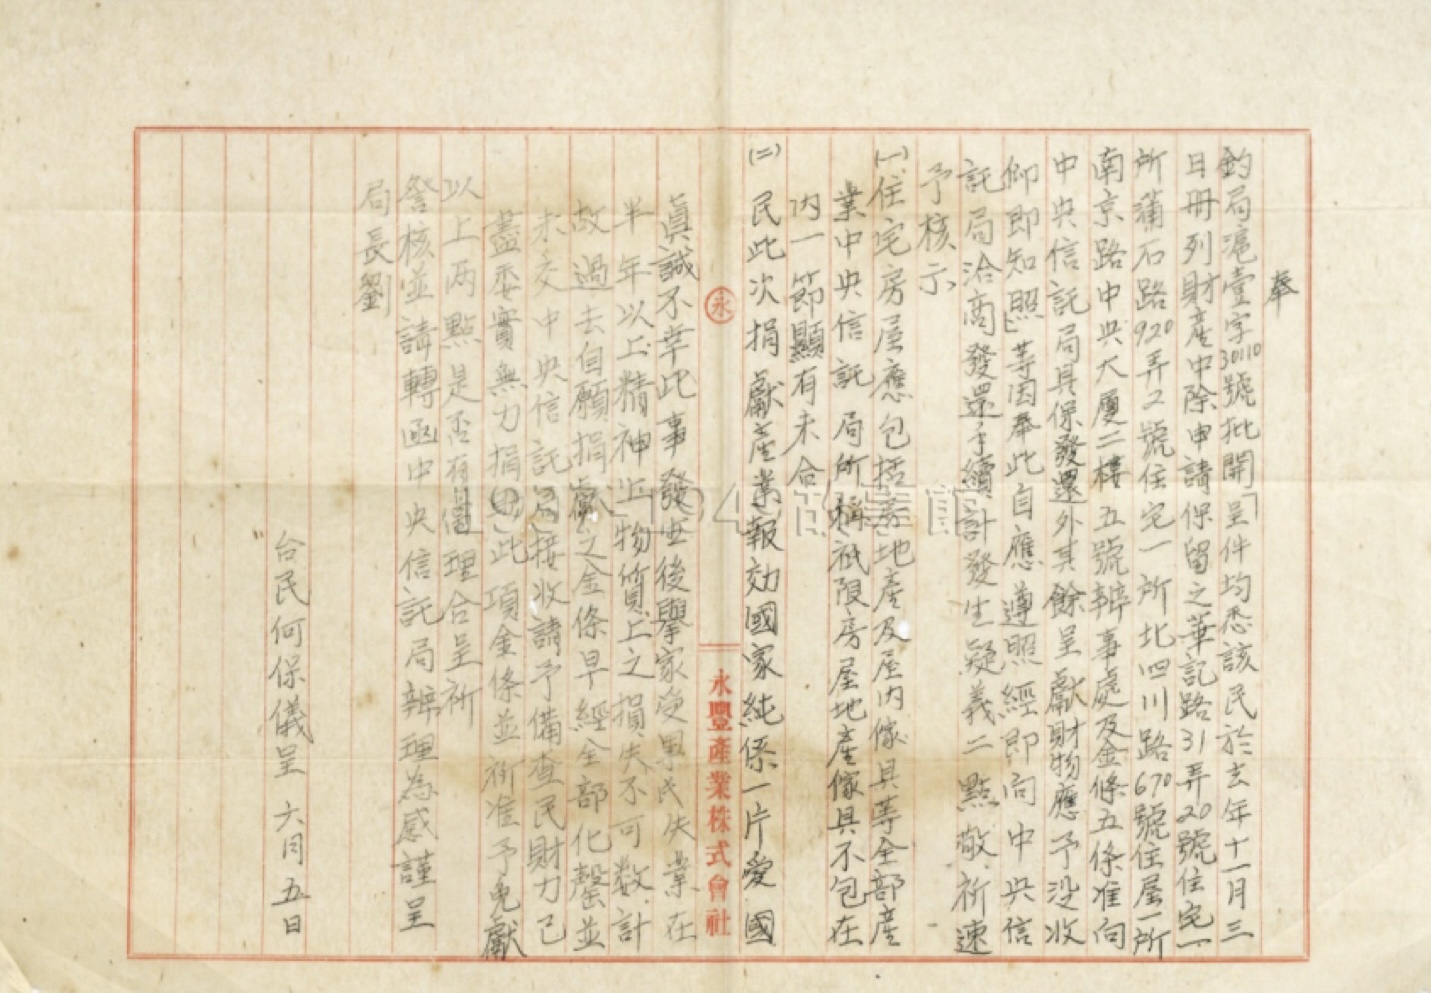 奉
鈞局滬壹字30110號批開「呈件均悉該民於去年十一月三
日冊列財產中除申請保留之華記路31弄20號住宅一
所蒲石路920弄2號住宅一所北四川路670號住屋一所
南京路中央大廈二樓五號辦事處及金條五條准向
中央信託局具保發還外其餘呈獻財物應予沒收
仰即知照」等因奉此自應遵照經即向中央信
託局洽商發還手續計發生疑義二點敬祈速
予核示
(一)住宅房屋應包括地產及屋內傢具等全部產
業中央信託局所稱祇限房屋地產傢具不包在
內一節顯有未合
(二)民此次捐獻產業報効國家純係一片愛國
真誠不幸此事發生後舉家受累民失業在
半年以上精神上物質上之損失不可數計
故過去自願捐獻之金條早經全部化罄並
未交中央信託局接收請予備查民財力已
盡委實無力捐此項金條並祈准予免獻
以上两點是否有當理合呈祈
詧核並請轉函中央信託局辦理為感謹呈
局長劉
台民何保儀呈 六月五日
永
永豐產業株式會社